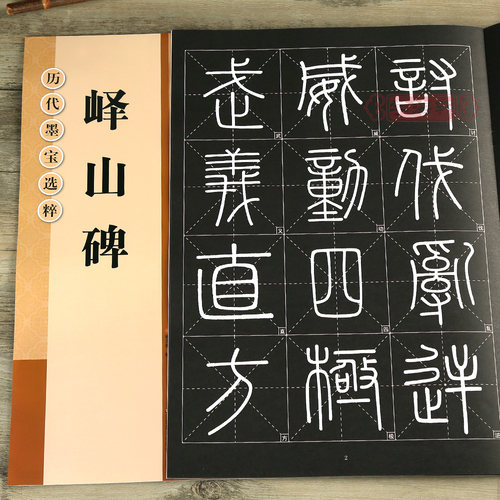 历代墨宝选粹
峄山碑
討伐亂逆
威動四極
武義直方
2